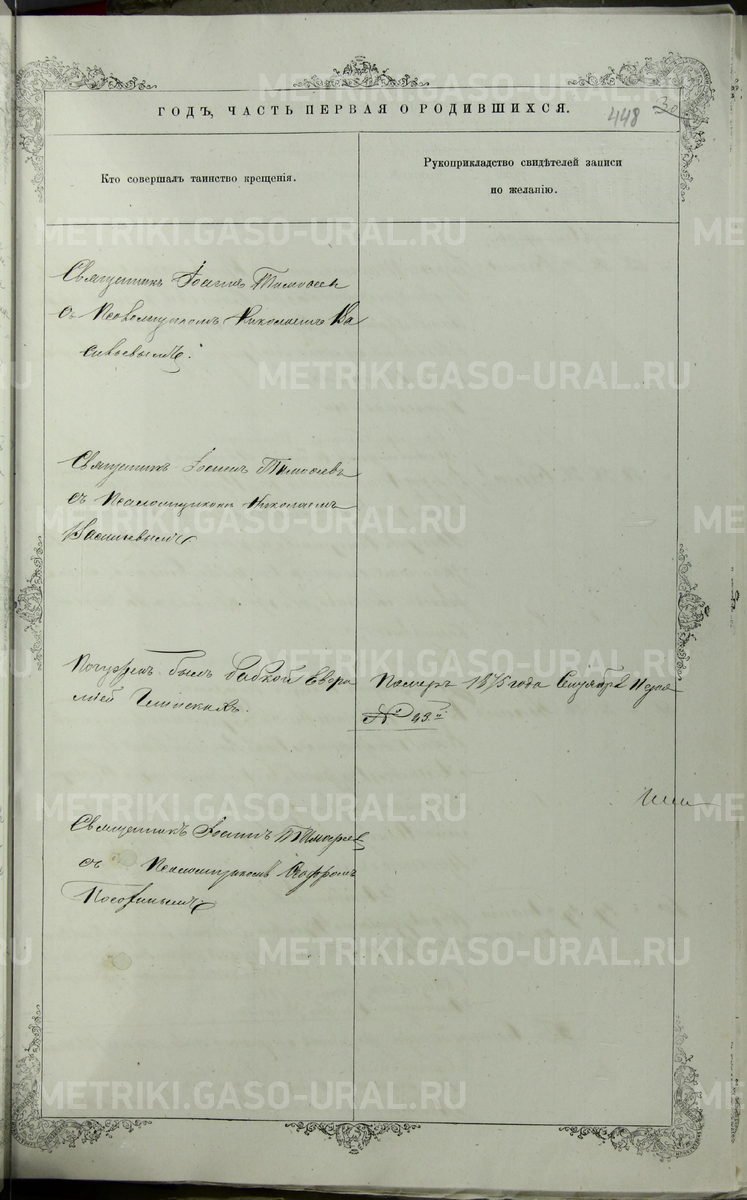 ГОДЪ, ЧАСТЬ ПЕРВАЯ О РОДИВШИХСЯ.
448
30
Кто совершалъ таинство крещенія.
Рукоприкладство свидѣтелей записи
по желанію.
Священникъ Іоаннъ Тимоѳеев
съ Псаломщикомъ Николаемъ Ва
сильевымъ.
Священникъ Іоаннъ Тимоѳеевъ
съ Псаломщикомъ Николаемъ
Васильевымъ
Погружен былъ бабкой Евѳи
міей
Померъ 1875 года Сентября
№ 43
Священникъ Іоаннъ
съ Псаломщикомъ
METRIKI.GASO-URAL.RU